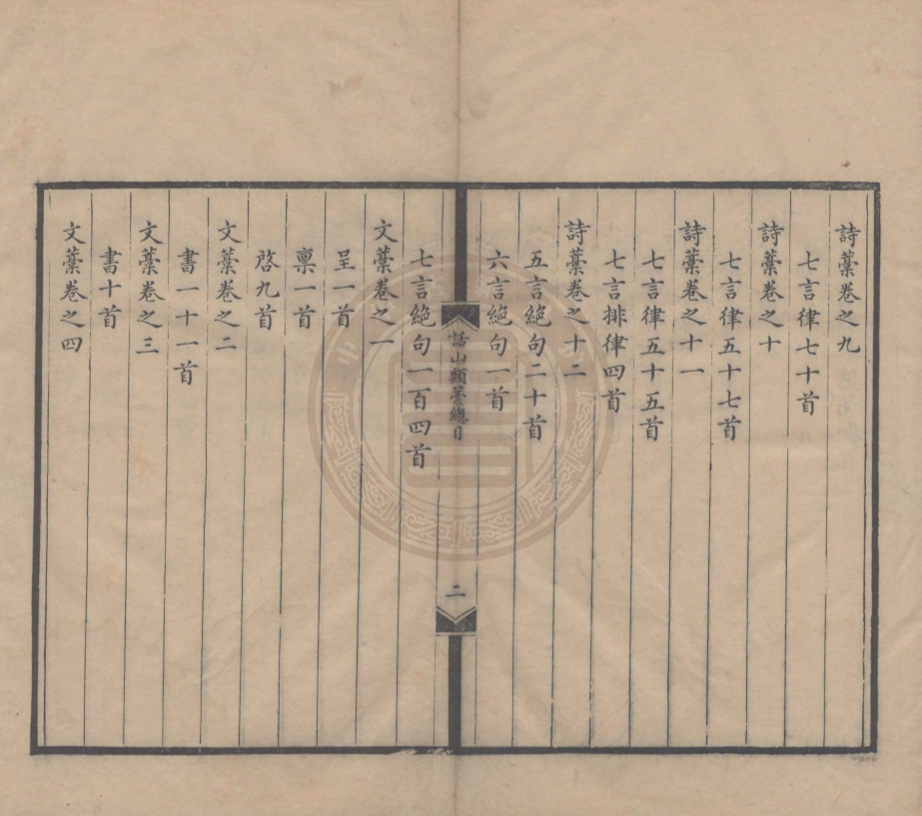 詩藁卷之九
七言律七十首
詩藁卷之十
七言律五十七首
詩藁卷之十一
七言律五十五首
七言排律四首
詩藁卷之十二
五言絕句二十首
六言絕句一首
話山類藁總目
二
七言絕句一百四首
文藁卷之一
呈一首
禀一首
啓九首
文藁卷之二
書一十一首
文藁卷之三
書十首
文藁卷之四